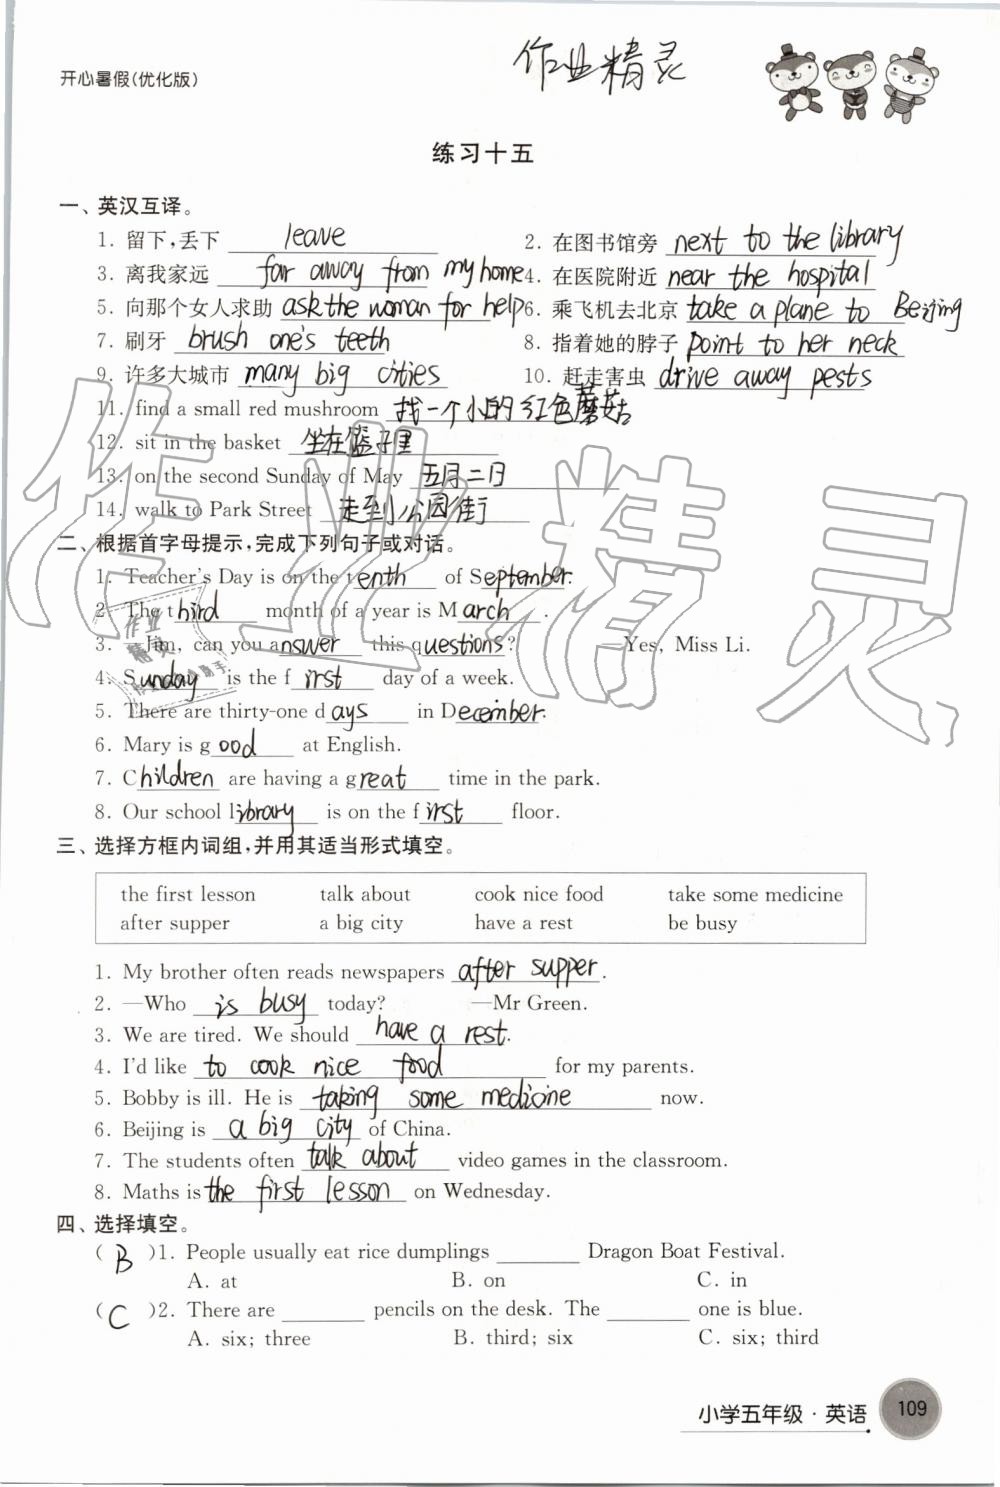 开心暑假(优化版)
作业精灵
练习十五
一、英汉互译。
1. 留下,丢下 leave 2. 在图书馆旁 next to the library
3. 离我家远 far away from my home 4. 在医院附近 near the hospital
5. 向那个女人求助 ask the woman for help 6. 乘飞机去北京 take a plane to Beijing
7. 刷牙 brush one's teeth 8. 指着她的脖子 point to her neck
9. 许多大城市 many big cities 10. 赶走害虫 drive away pests
11. find a small red mushroom 找一个小的红色蘑菇
12. sit in the basket 坐在篮子里
13. on the second Sunday of May 五月二日
14. walk to Park Street 走到公园街
二、根据首字母提示,完成下列句子或对话。
1. Teacher's Day is on the tenth of September.
2. The third month of a year is March.
3. —Jim, can you answer this questions? —Yes, Miss Li.
4. Sunday is the first day of a week.
5. There are thirty-one days in December.
6. Mary is good at English.
7. Children are having a great time in the park.
8. Our school library is on the first floor.
三、选择方框内词组,并用其适当形式填空。
the first lesson talk about cook nice food take some medicine
after supper a big city have a rest be busy
1. My brother often reads newspapers after supper.
2. —Who is busy today? —Mr Green.
3. We are tired. We should have a rest.
4. I'd like to cook nice food for my parents.
5. Bobby is ill. He is taking some medicine now.
6. Beijing is a big city of China.
7. The students often talk about video games in the classroom.
8. Maths is the first lesson on Wednesday.
四、选择填空。
( B )1. People usually eat rice dumplings ______ Dragon Boat Festival.
A. at B. on C. in
( C )2. There are ______ pencils on the desk. The ______ one is blue.
A. six; three B. third; six C. six; third
小学五年级·英语 109
作业精灵